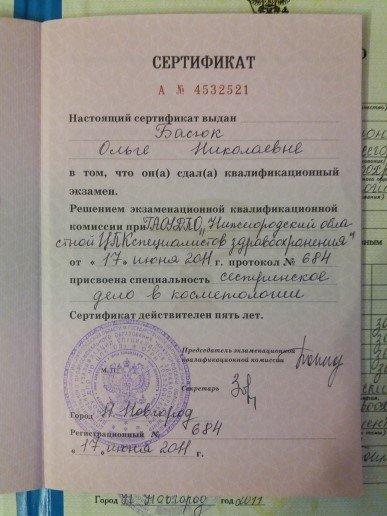 СЕРТИФИКАТ
А № 4532521
Настоящий сертификат выдан
Басюк
Ольге Николаевне
в том, что он(а) сдал(а) квалификационный
экзамен.
Решением экзаменационной квалификационной
комиссии при ГАОУДПО „Нижегородский обла-
стной ЦПК специалистов здравоохранения"
от «17» июня 2011 г. протокол № 684
присвоена специальность сестринское
дело в косметологии
Сертификат действителен пять лет.
Председатель экзаменационной
квалификационной комиссии
М.П.
Секретарь
Город Н. Новгород
Регистрационный № 684
«17» июня 2011 г.
Город Н. Новгород год 2011